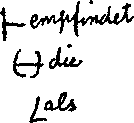 ⊢ empfindet
(–) die
⌊als